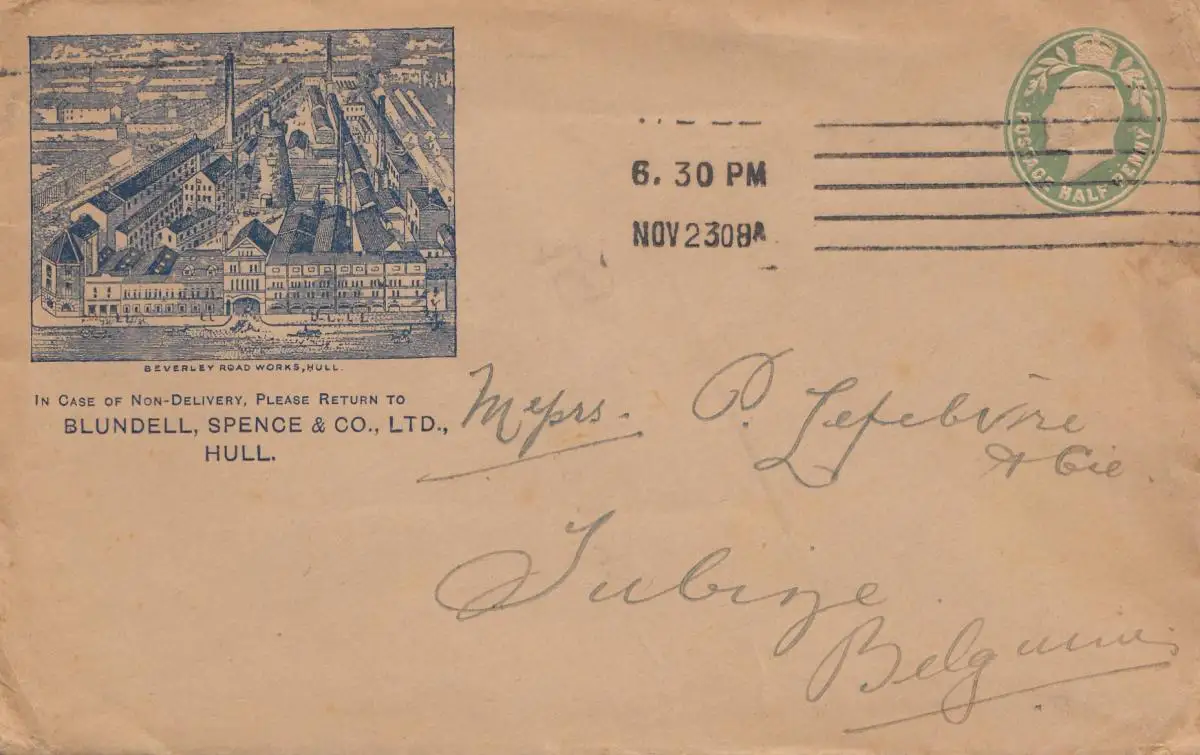 POSTAGE HALF PENNY
6. 30 PM
NOV 23 08 A
BEVERLEY ROAD WORKS, HULL.
IN CASE OF NON-DELIVERY, PLEASE RETURN TO
BLUNDELL, SPENCE & CO., LTD.,
HULL.
Messrs. P. Lefebvre
& Cie
Tubize
Belgium